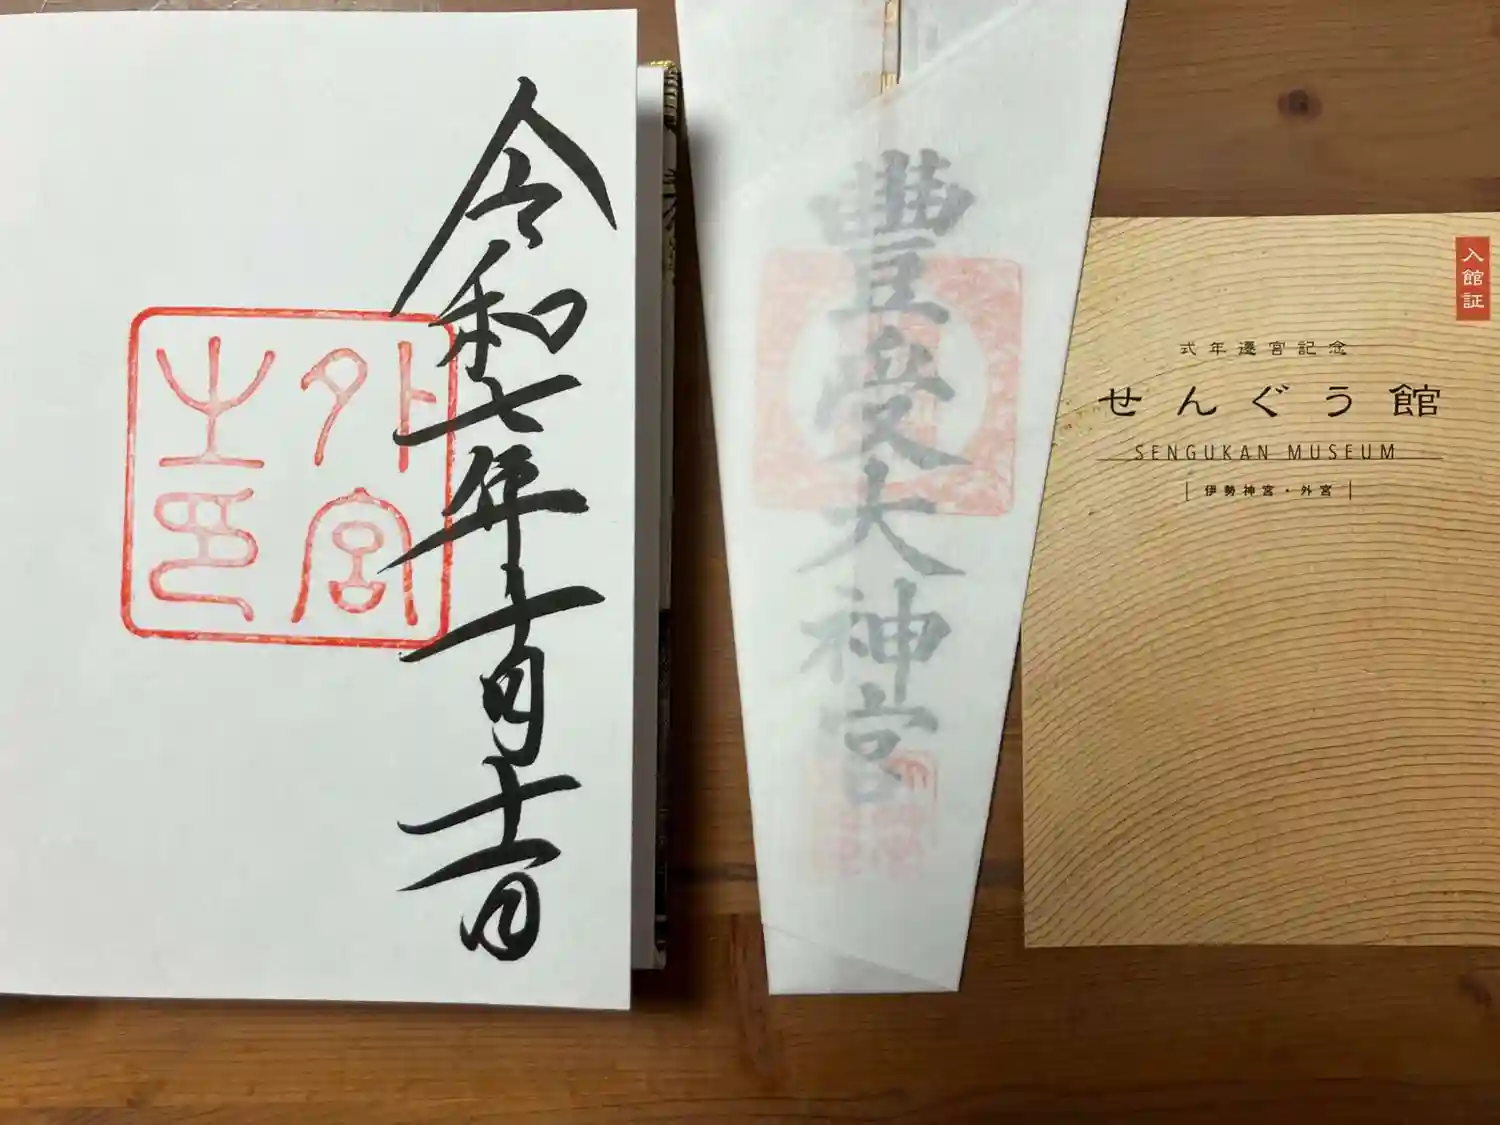 令和七年十月十一日
外宮
之印
豐受大神宮
入館証
式年遷宮記念
せんぐう館
SENGUKAN MUSEUM
伊勢神宮・外宮